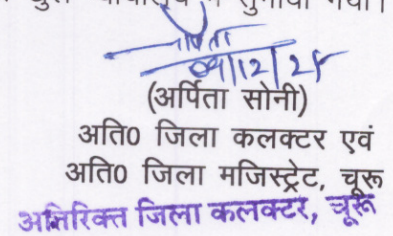 सुनाया गया।
अर्पिता
09/12/25
(अर्पिता सोनी)
अति0 जिला कलक्टर एवं
अति0 जिला मजिस्ट्रेट, चूरू
अतिरिक्त जिला कलक्टर, चूरू